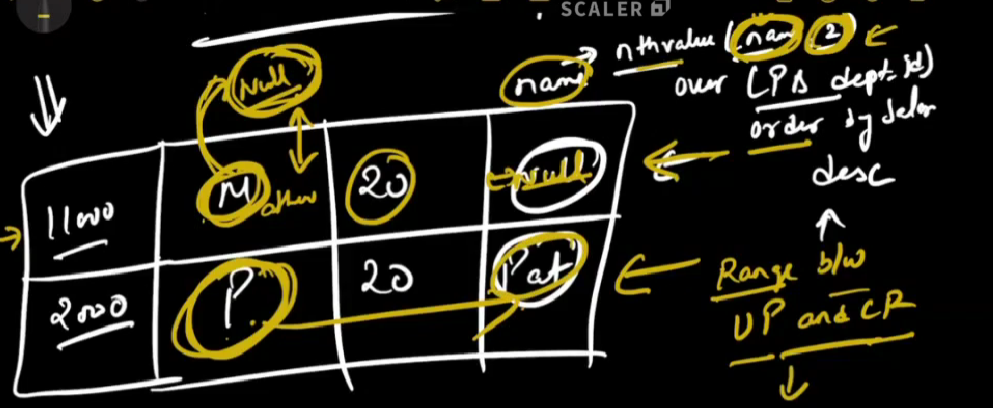 SCALER
Null
name → nthvalue (name, 2) ←
over (PB dept_id)
order by salary
desc
11000 | Mathew | 20 | Null
2000 | P | 20 | Pat
Range b/w
UP and CR